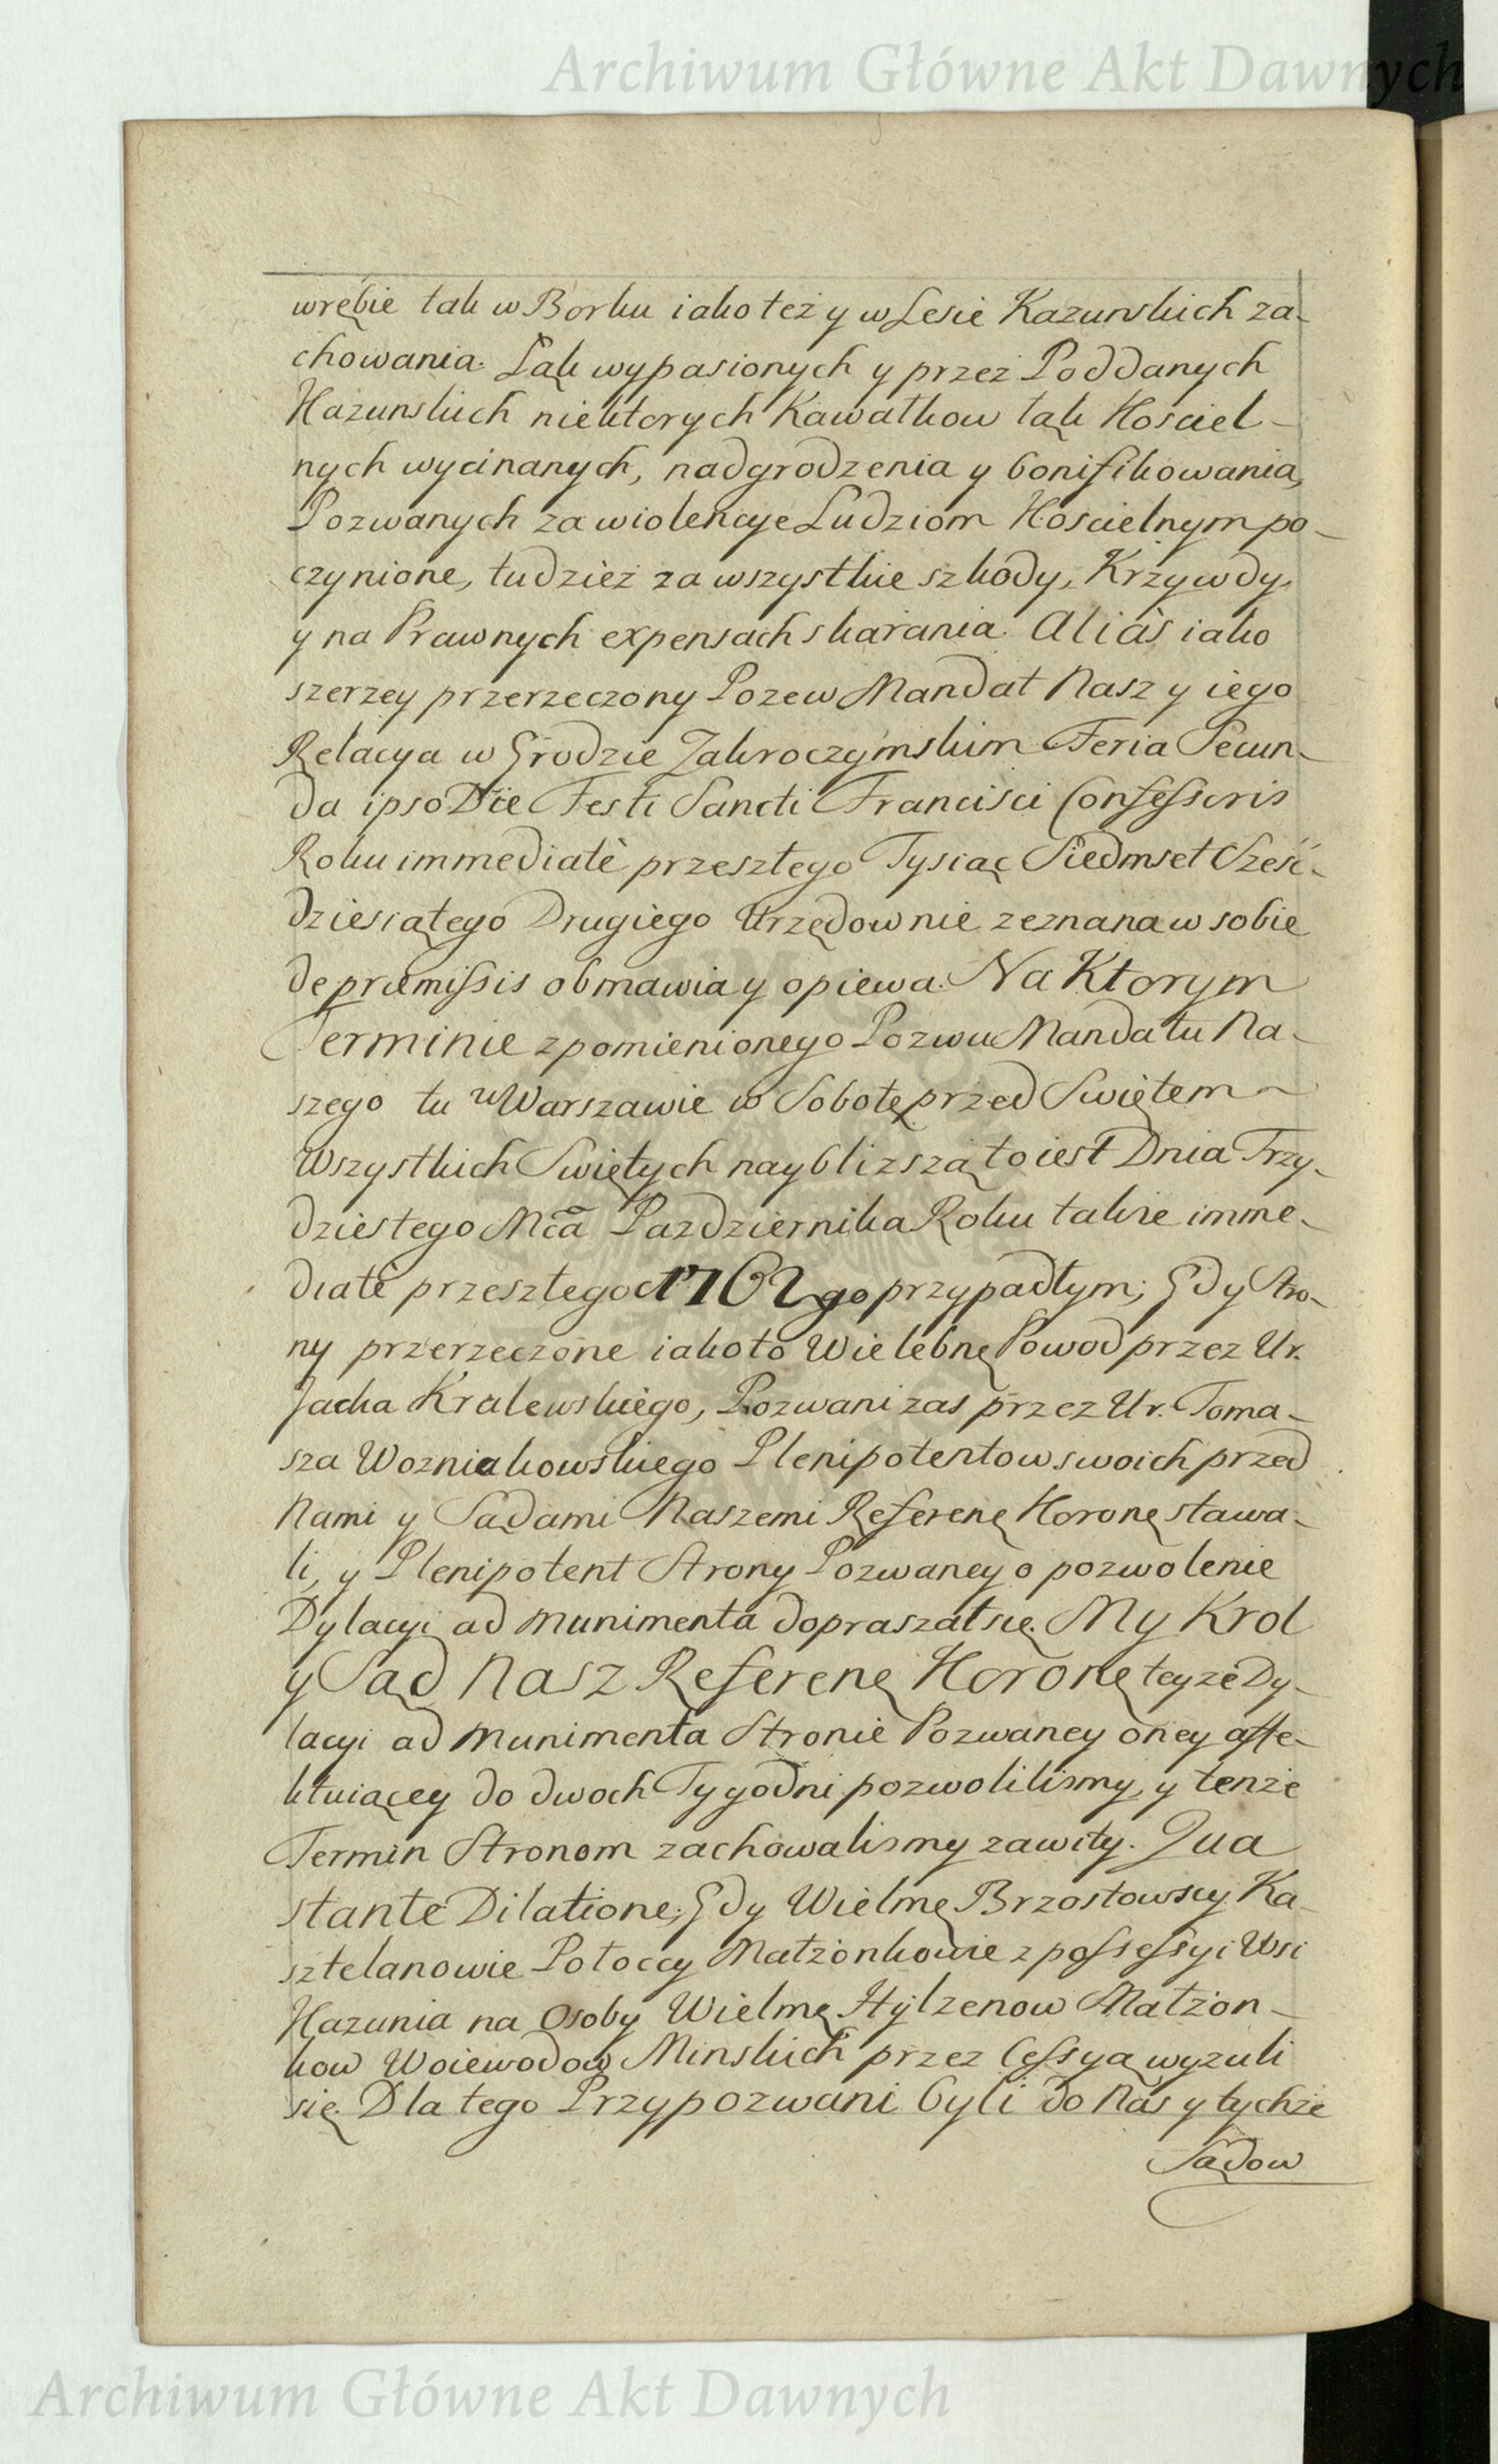 Archiwum Główne Akt Dawnych
wrębie tak w Borku iako też y w Lesie Kazunskich za-
chowania. Łąk wypasionych y przez Poddanych
Kazunskich niektorych Kawałkow łąk Kosciel-
nych wycinanych, nadgrodzenia y bonifikowania,
Pozwanych za wiolencye Ludziom Koscielnym po-
czynione, tudzież za wszystkie szkody, Krzywdy,
y na Prawnych expensach skarania. Aliàs iako
szerzey przerzeczony Pozew Mandat Nasz y iego
Relacya w Grodzie Zakroczymskim Feria Secun-
da ipso Die Festi Sancti Francisci Confessoris
Roku immediatè przeszłego Tysiąc Siedmset Sześć-
dziesiątego Drugiego Urzędownie zeznana w sobie
de præmissis obmawia y opiewa. Na Ktorym
Terminie z pomienionego Pozwu Mandatu Na-
szego tu w Warszawie w Sobotę przed Swiętem
Wszystkich Swiętych naybliższą to iest Dnia Trzy-
dziestego Mca Pazdziernika Roku także imme-
diatè przeszłego 1762go przypadłym; Gdy Stro-
ny przerzeczone iako to Wielebnę Powod przez Ur.
Jacka Kralewskiego, Pozwani zas przez Ur. Toma-
sza Wozniakowskiego Plenipotentow swoich przed
Nami y Sądami Naszemi Referenę Koronę stawa-
li, y Plenipotent Strony Pozwaney o pozwolenie
Dylacyi ad munimenta dopraszał się. My Krol
y Sąd Nasz Referenę Koronę teyże Dy-
lacyi ad munimenta Stronie Pozwaney oney affe-
ktuiącey do dwoch Tygodni pozwolilismy, y tenże
Termin Stronom zachowalismy zawity. Qua
stante Dilatione, Gdy Wielmę Brzostowscy Ka-
sztelanowie Połoccy Małżonkowie z possessyi Wsi
Kazunia na Osoby Wielmę Hylzenow Małżon-
kow Woiewodow Minskich przez Cessyą wyzuli
się. Dla tego Przypozwani byli do Nas y tychże
Sądow
Archiwum Główne Akt Dawnych